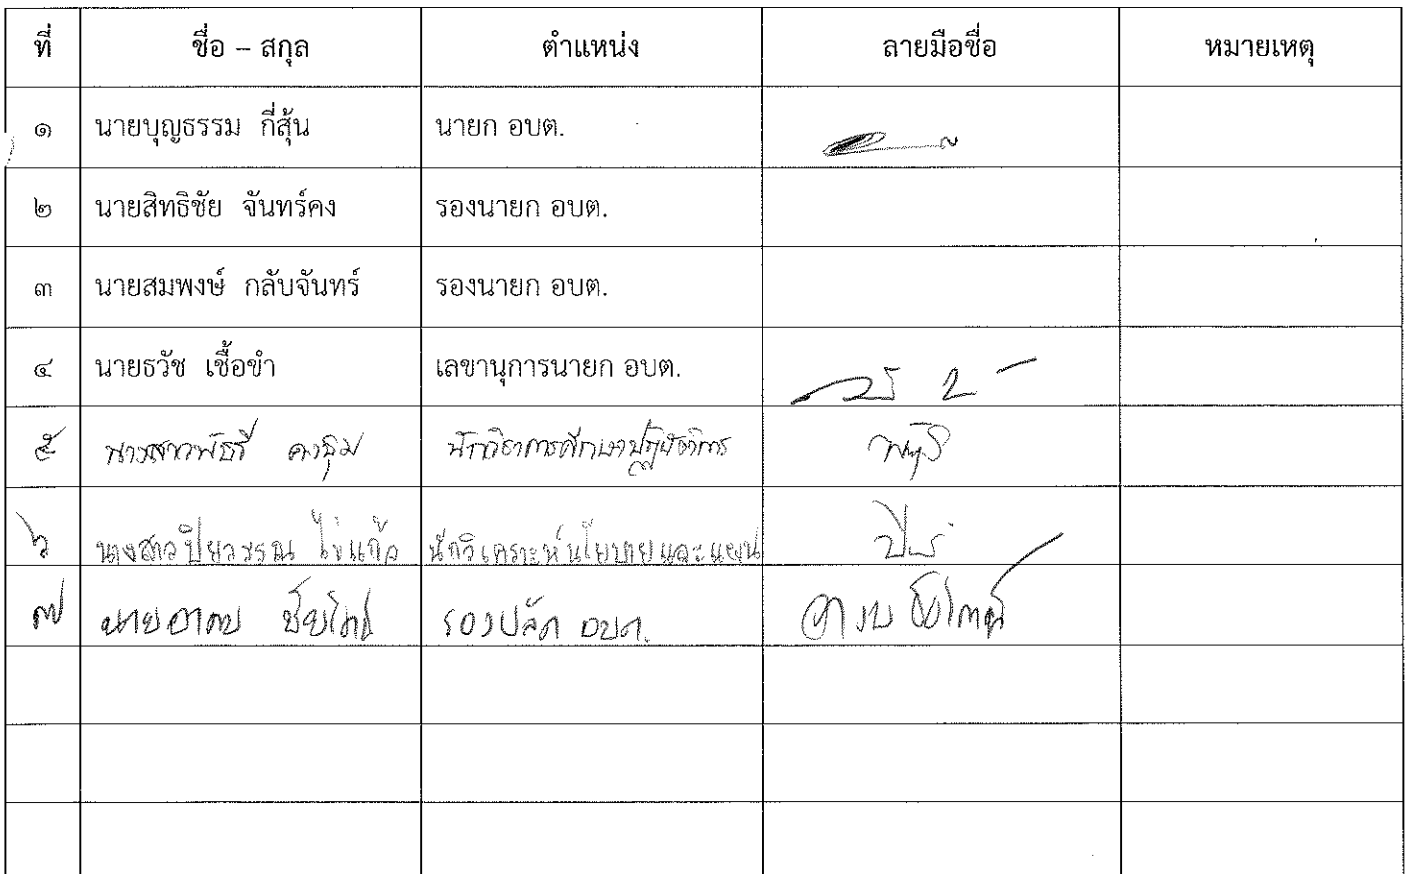 ที่ ชื่อ – สกุล ตำแหน่ง ลายมือชื่อ หมายเหตุ
๑ นายบุญธรรม กี่สุ้น นายก อบต.
๒ นายสิทธิชัย จันทร์คง รองนายก อบต.
๓ นายสมพงษ์ กลับจันทร์ รองนายก อบต.
๔ นายธวัช เชื้อขำ เลขานุการนายก อบต.
๕ นักวิชาการศึกษาปฏิบัติการ
๖ นางสาวปิยวรรณ ไข่แก้ว นักวิเคราะห์นโยบายและแผน
๗ รองปลัด อบต.